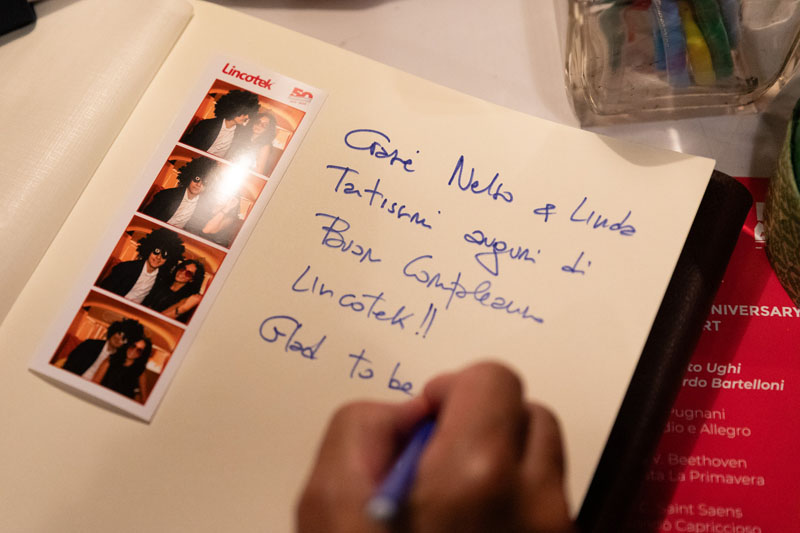 Lincotek
50
Grazie Nelso & Linda
Tantissimi auguri di
Buon Compleanno
Lincotek!!
Glad to be
NNIVERSARY
RT
to Ughi
rdo Bartelloni
Pugnani
dio e Allegro
V. Beethoven
ta La Primavera
Saint Saens
Capriccioso